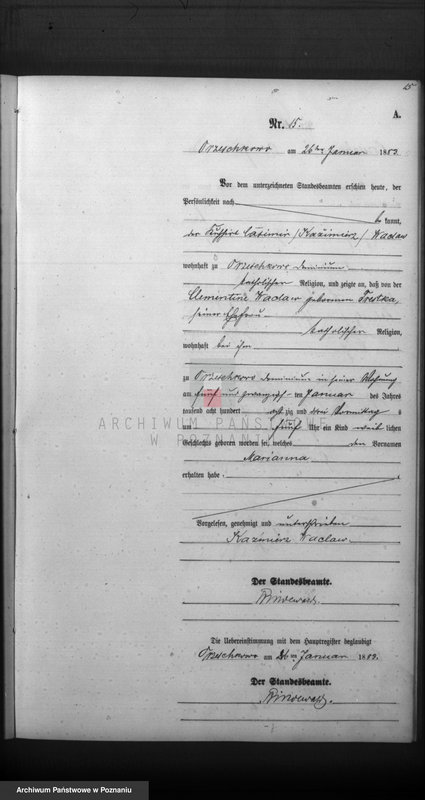 15
A.
Nr. 15.
Orzeschkowo am 26ten Januar 1883.
Vor dem unterzeichneten Standesbeamten erschien heute, der
Persönlichkeit nach
be kannt,
der Casimir (Kazimierz) Waclaw
wohnhaft zu Orzeschkowo Dominium
katholischer Religion, und zeigte an, daß von der
Clementine Waclaw geborenen Trestka,
seiner Ehefrau
katholischer Religion,
wohnhaft bei ihm
zu Orzeschkowo Dominium in seiner Wohnung
am fünf und zwanzigsten Januar des Jahres
tausend acht hundert acht zig und drei Vormittag s
um fünf Uhr ein Kind weib lichen
Geschlechts geboren worden sei, welches den Vornamen
Marianna
erhalten habe.
ARCHIWUM PAŃSTWOWE
W POZNANIU
Vorgelesen, genehmigt und unterschrieben
Kazimierz Waclaw
Der Standesbeamte.
Die Uebereinstimmung mit dem Hauptregister beglaubigt
Orzeschkowo am 26ten Januar 1883.
Der Standesbeamte.
Archiwum Państwowe w Poznaniu